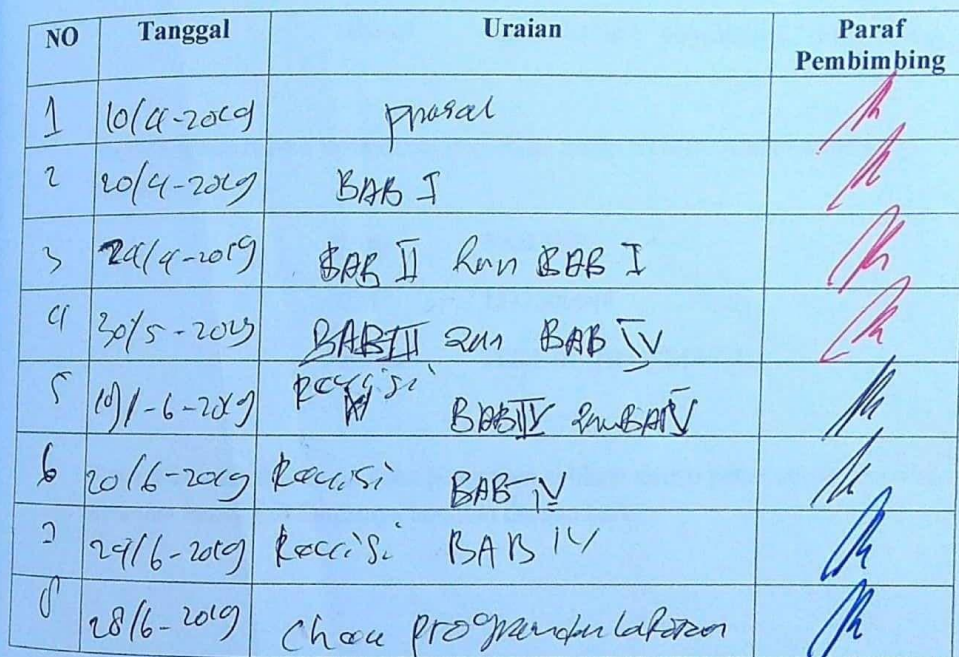 NO Tanggal Uraian Paraf Pembimbing
1 10/4-2019
2 20/4-2019 BAB I
3 24/4-2019 BAB II dan BAB I
4 30/5-2019 BAB III dan BAB IV
5 BAB IV dan BAB V
6 20/6-2019 Revisi BAB IV
7 24/6-2019 Revisi BAB IV
8 28/6-2019 program dan laporan